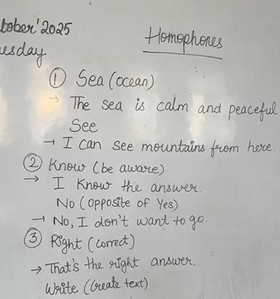 tober'2025
Homophones
esday
① Sea (ocean)
→ The sea is calm and peaceful
See
→ I can see mountains from here.
② Know (be aware)
→ I know the answer.
No (opposite of Yes)
→ No, I don't want to go.
③ Right (correct)
→ That's the right answer.
Write (Create text)